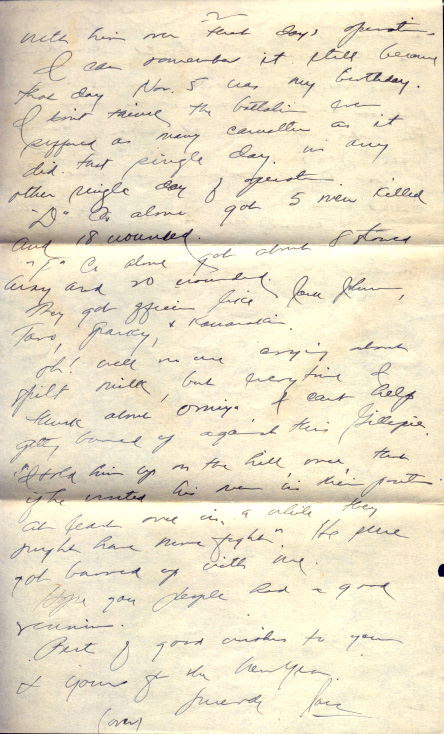 2
with him over that days operation.
I can remember it still because
that day Nov. 5 was my birthday.
I don't think the battalion ever
suffered as many casualties as it
did that single day in any
other single day of operation.
"D" Co alone got 5 men killed
and 18 wounded.
"F" Co alone got about 8 stoned
away and 20 wounded.
They got officers like Jack Johnson,
Taro, Sparky, &
Oh! well no use crying about
spilt milk, but everytime I
think about I can't help
getting burned up against this Gillespie.
I told him up on the hill once, that
if he visited his men in their
at least once in a while they
might have more fight". He sure
got burned up with me.
Hope you people had a good
reunion.
Best of good wishes to you
& yours for the New Year.
Sincerely
(over)